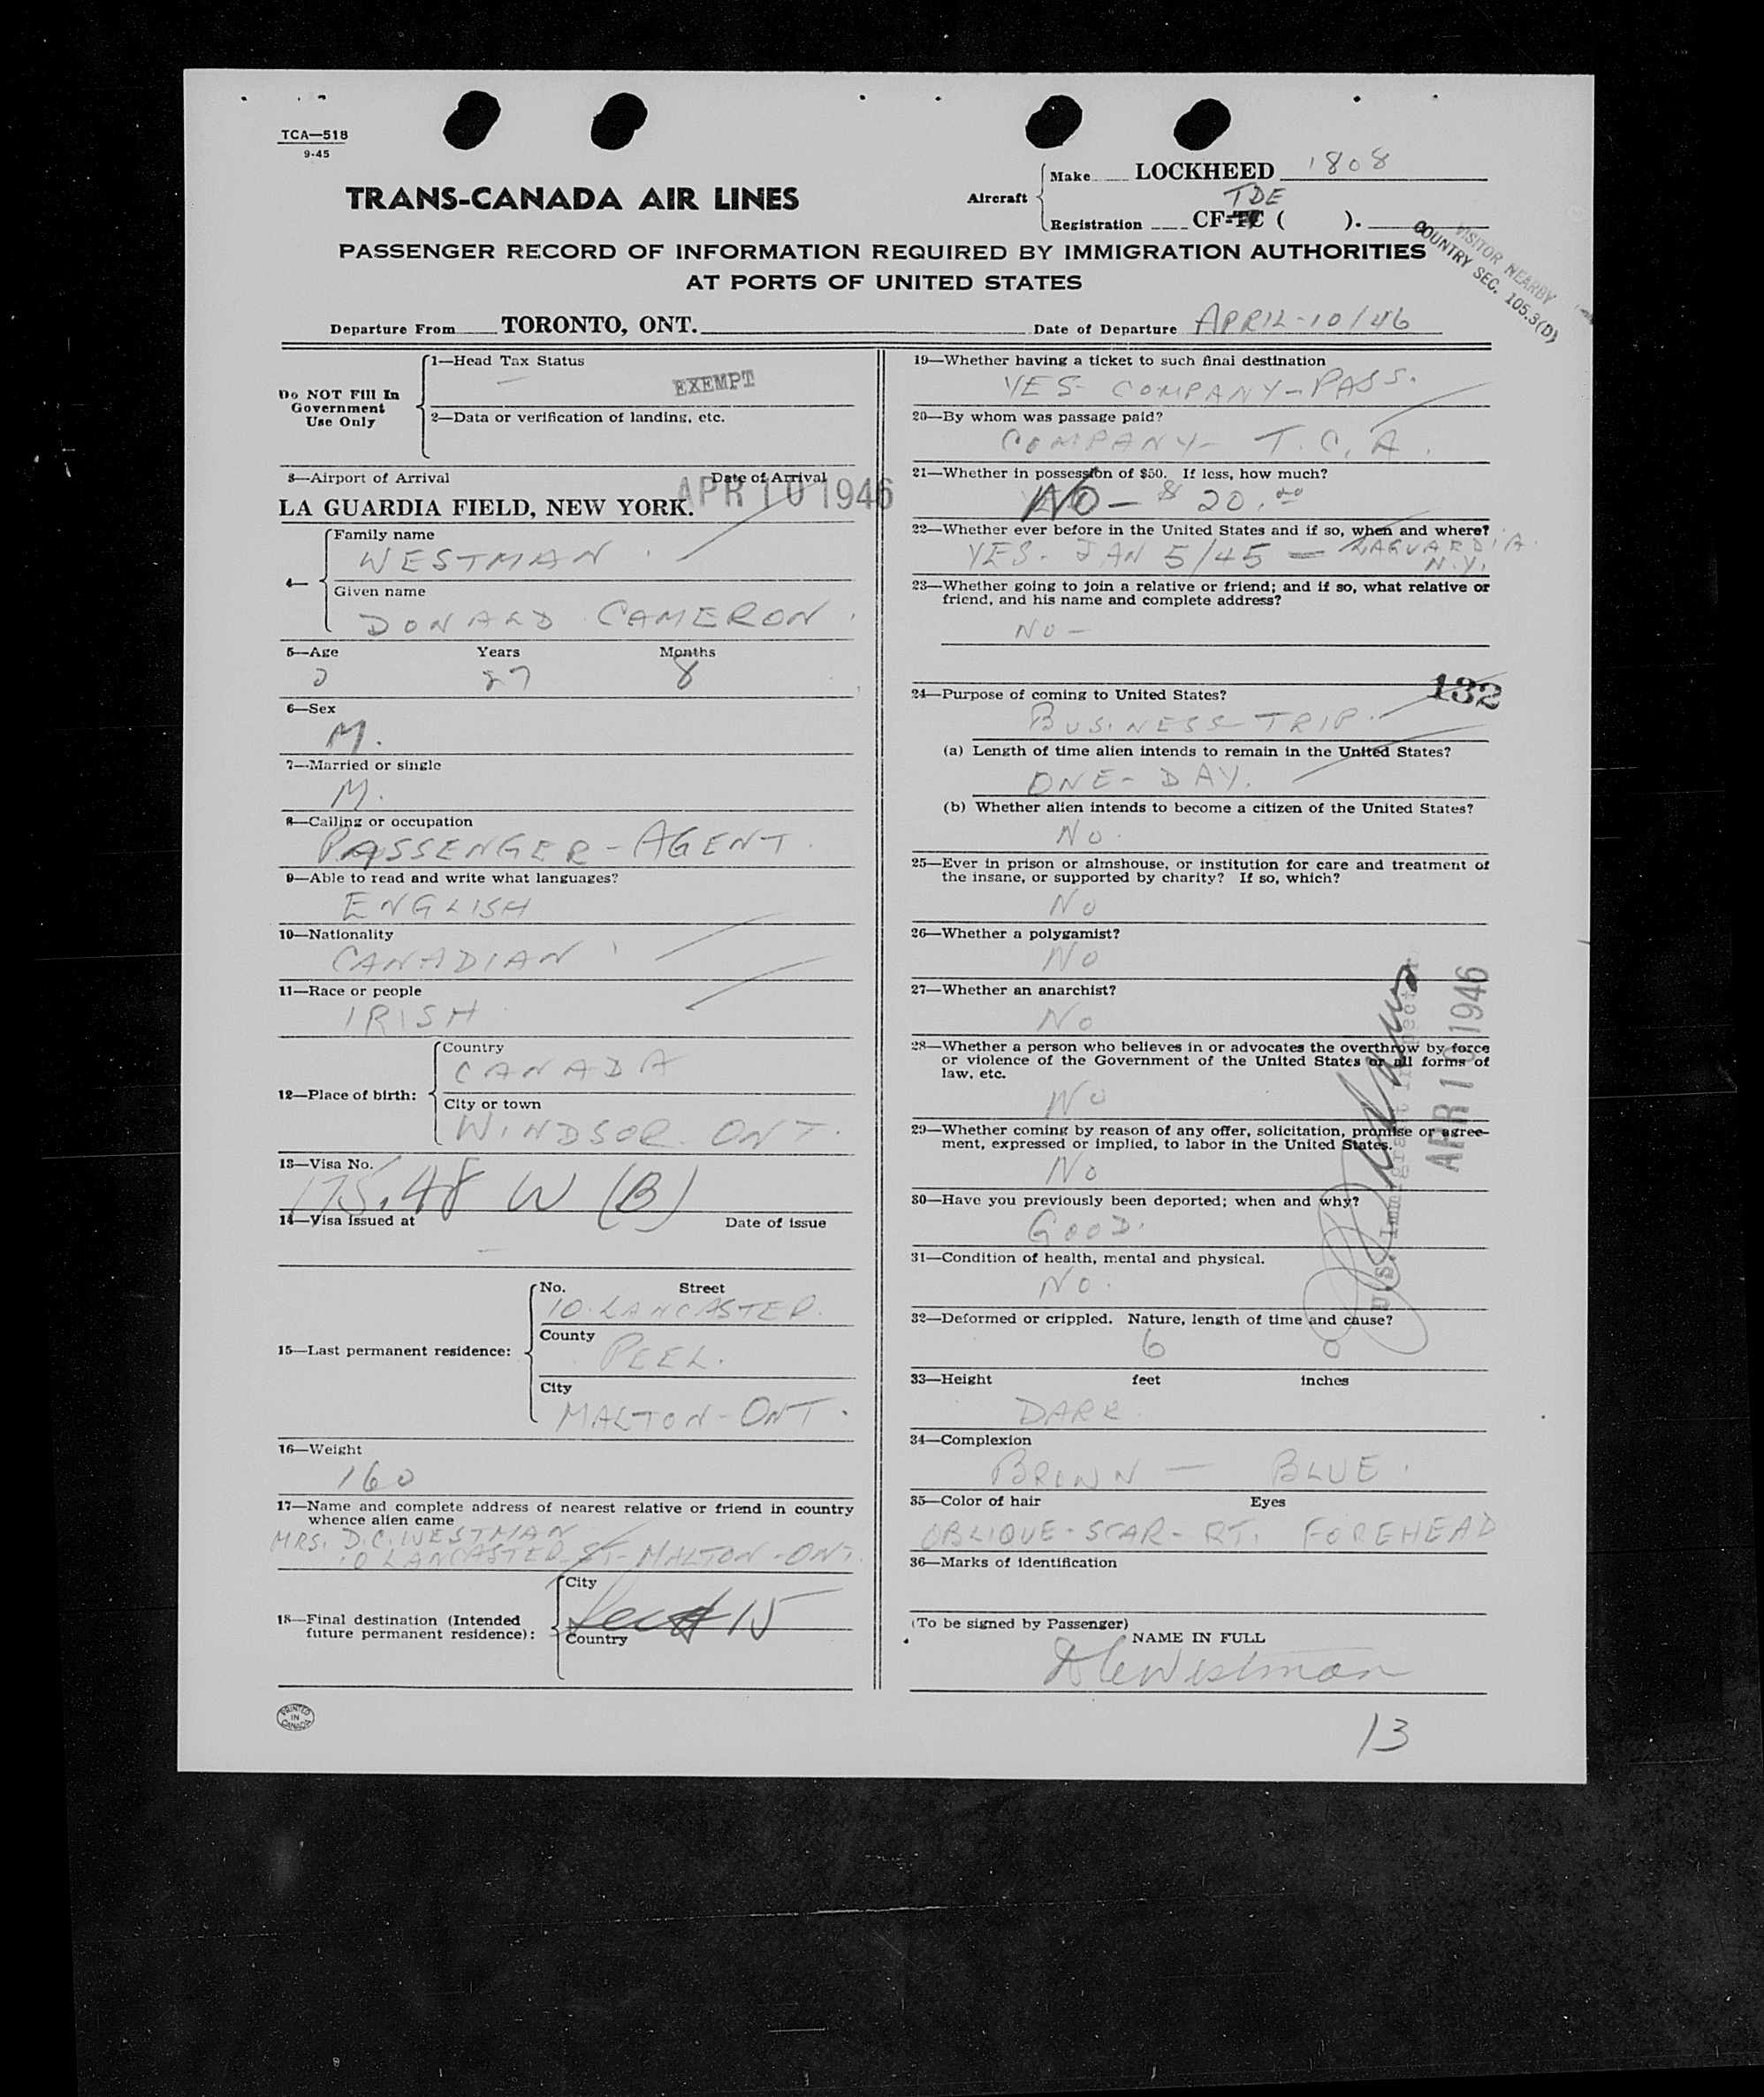 TCA—518
9-45
TRANS-CANADA AIR LINES
Aircraft
Make LOCKHEED 1808
TDE
Registration CF-TC ( ).
VISITOR NEARBY
COUNTRY SEC. 105.3(D)
PASSENGER RECORD OF INFORMATION REQUIRED BY IMMIGRATION AUTHORITIES
AT PORTS OF UNITED STATES
Departure From TORONTO, ONT. Date of Departure APRIL-10/46
Do NOT Fill In
Government
Use Only
1—Head Tax Status
EXEMPT
2—Data or verification of landing, etc.
3—Airport of Arrival Date of Arrival
LA GUARDIA FIELD, NEW YORK. APR 10 1946
4—
Family name
WESTMAN
Given name
DONALD CAMERON
5—Age Years Months
27 8
6—Sex
M.
7—Married or single
M.
8—Calling or occupation
PASSENGER-AGENT
9—Able to read and write what languages?
ENGLISH
10—Nationality
CANADIAN
11—Race or people
IRISH
12—Place of birth:
Country
CANADA
City or town
WINDSOR. ONT.
13—Visa No.
175.48 W (B)
14—Visa issued at Date of issue
15—Last permanent residence:
No. Street
10. LANCASTER.
County
PEEL.
City
MALTON-ONT.
16—Weight
160
17—Name and complete address of nearest relative or friend in country
whence alien came
MRS. D.C. WESTMAN
10 LANCASTER ST- MALTON-ONT.
18—Final destination (Intended
future permanent residence):
City
15
Country
PRINTED
IN
CANADA
19—Whether having a ticket to such final destination
YES- COMPANY-PASS.
20—By whom was passage paid?
COMPANY- T.C.A.
21—Whether in possession of $50. If less, how much?
No- $ 20.00
22—Whether ever before in the United States and if so, when and where?
YES- JAN 5/45 — LAGUARDIA
N.Y.
23—Whether going to join a relative or friend; and if so, what relative or
friend, and his name and complete address?
NO-
132
24—Purpose of coming to United States?
BUSINESS TRIP.
(a) Length of time alien intends to remain in the United States?
ONE-DAY.
(b) Whether alien intends to become a citizen of the United States?
No.
25—Ever in prison or almshouse, or institution for care and treatment of
the insane, or supported by charity? If so, which?
No
26—Whether a polygamist?
No
27—Whether an anarchist?
No
28—Whether a person who believes in or advocates the overthrow by force
or violence of the Government of the United States or all forms of
law, etc.
No
29—Whether coming by reason of any offer, solicitation, promise or agree-
ment, expressed or implied, to labor in the United States.
No
30—Have you previously been deported; when and why?
GOOD.
31—Condition of health, mental and physical.
NO.
32—Deformed or crippled. Nature, length of time and cause?
6 0
33—Height feet inches
DARK
34—Complexion
BROWN — BLUE.
35—Color of hair Eyes
OBLIQUE-SCAR-RT. FOREHEAD
36—Marks of identification
U.S. Immigrant Inspector
APR 10 1946
(To be signed by Passenger)
NAME IN FULL
DCWestman
13